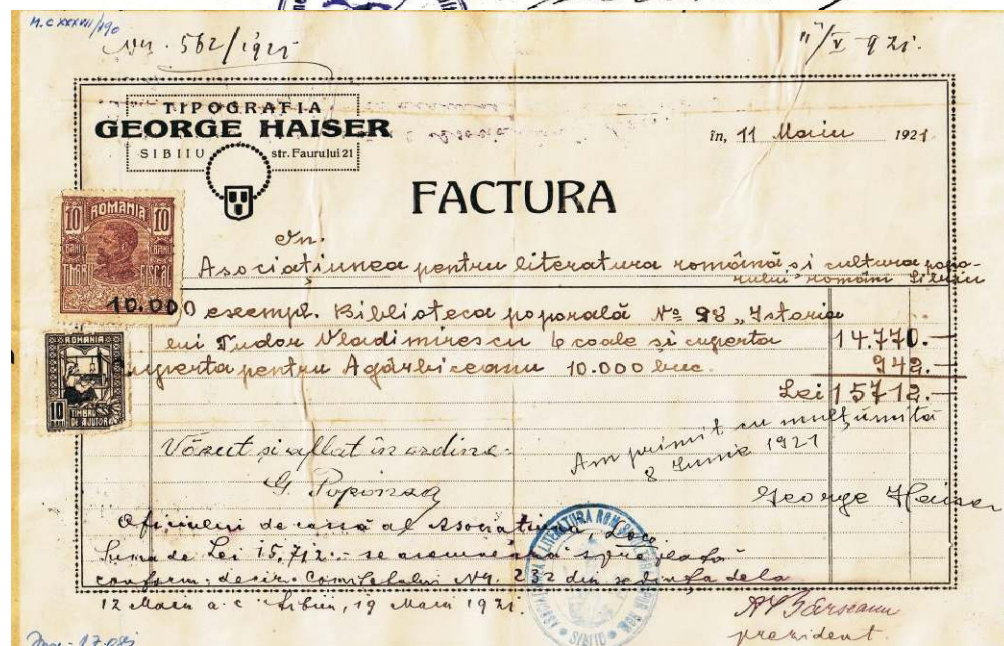 M.C XXXVII/190
Nr. 562/1921
11/V 921.
TIPOGRAFIA
GEORGE HAISER
SIBIIU str. Faurului 21
în, 11 Maiu 1921
FACTURA
On.
Asociațiunea pentru literatura română și cultura poporului român Sibiiu
10 ROMANIA 10
BANI BANI
TIMBRU FISCAL
10.000 exempl. Biblioteca poporală № 98 „Istoria
lui Tudor Vladimirescu 6 coale și cuperta 14.770.—
cuperta pentru Agârbiceanu 10.000 buc. 942.—
Lei 15712.—
ROMANIA
10 BANI TIMBRU DE AJUTOR
Am primit cu mulțumită
8 Iunie 1921
George Haiser
Văzut și aflat în ordine.
Oficiului de cassă al Asociațiunii Loco.
Suma de Lei 15,712.- se asemnează spre plată
conform decis. Comitetului Nr. 232 din ședința dela
12 Maiu a. c. Sibiiu, 19 Maiu 1921.
SIBIIU
Bârseanu
prezident.